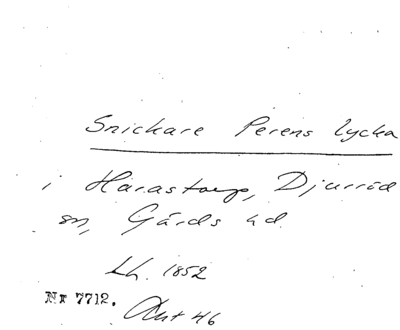 Snickare Perens lycka
i Harastorp, Djurröd
sn, Gärds hd.
Lh. 1852
Nr 7712.
Ant 46